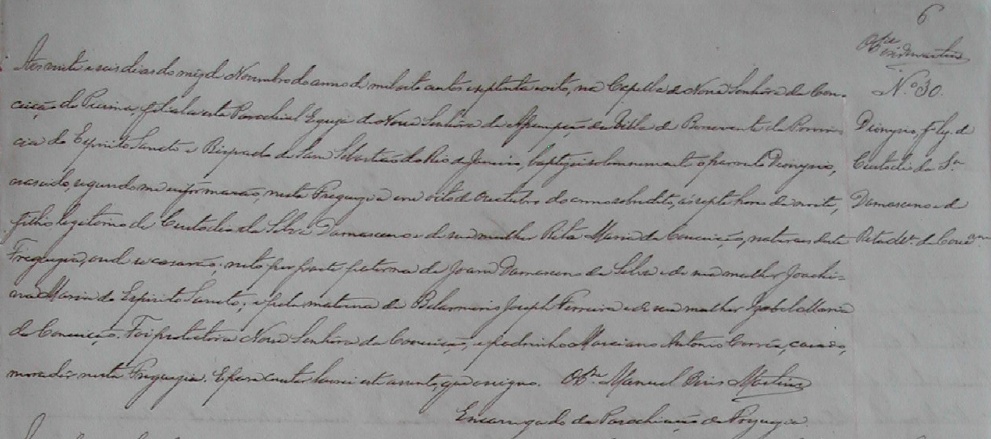 6
Pires Martins
Aos vinte e seis dias do mez de Novembro do anno de mil oito centos e septenta e oito, na Capella de Nossa Senhora da Con-
Nº 30.
ceição de Piuma, filial a esta Parochial Egreja de Nossa Senhora da Assumpção da Villa de Benevente da Provin-
Dionysio, f. leg. de
cia do Espirito Sancto e Bispado de Sam Sebastião do Rio de Janeiro, baptizei solemnemente o parvulo Dionysio,
Custodio da Sª
nascido, segundo me informarão, nesta Freguezia em oito de Outubro do anno sobredito, ás septe horas da noite,
Damasceno e de
filho legitimo de Custodio da Silva Damasceno e de sua mulher Rita Maria da Conceição, naturaes desta
Rita Mª da Conceiçam
Freguezia, onde se casarão; neto por parte paterna de Joam Damasceno da Silva e de sua mulher Joachi-
na Maria do Espirito Sancto; e pela materna de Belarmino Joseph Ferreira e de sua mulher Izabel Maria
da Conceição. Foi protectora Nossa Senhora da Conceição, e padrinho Marciano Antonio Corrêa, casado,
morador nesta Freguezia. E para constar lavrei este assento, que assigno. Manuel Pires Martins
Encarregado da Parochiação da Freguezia.